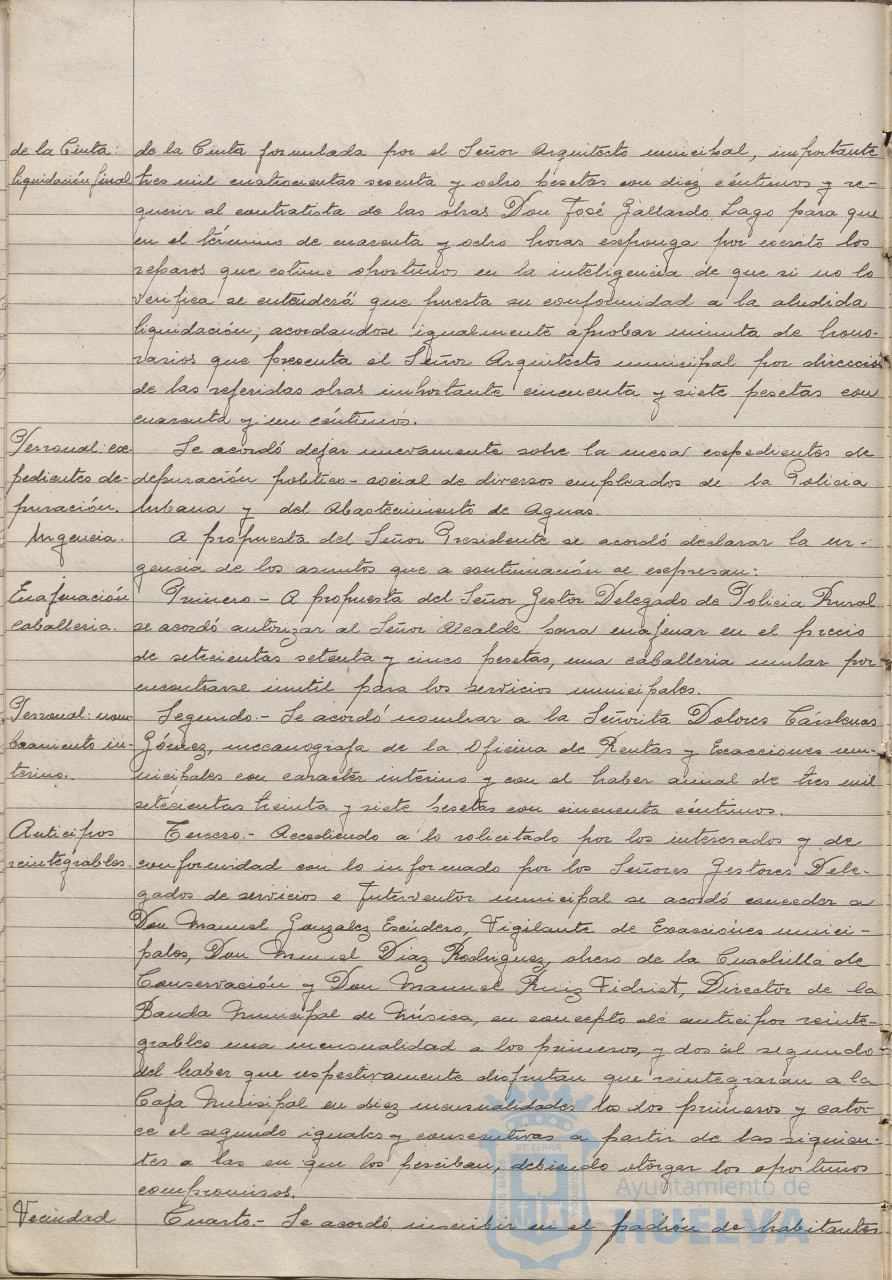 de la Cinta: de la Cinta formulada por el Señor Arquitecto municipal, importante
liquidación final tres mil cuatrocientas sesenta y ocho pesetas con diez céntimos y re-
querir al contratista de las obras Don José Gallardo Lago para que
en el término de cuarenta y ocho horas esponga por escrito los
reparos que estime oportunos en la inteligencia de que si no lo
verifica se entenderá que presta su conformidad a la aludida
liquidación; acordandose igualmente aprobar minuta de hono-
rarios que presenta el Señor Arquitecto municipal por dirección
de las referidas obras importante cincuenta y siete pesetas con
cuarenta y un céntimos.
Personal: ex- Se acordó dejar nuevamente sobre la mesa espedientes de
pedientes de- depuración politico-social de diversos empleados de la Policia
puración. Urbana y del Abastecimiento de Aguas.
Urgencia. A propuesta del Señor Presidente se acordó declarar la ur-
gencia de los asuntos que a continuación se espresan:
Enajenación Primero- A propuesta del Señor Gestor Delegado de Policia Rural
caballeria. se acordó autorizar al Señor Alcalde para enajenar en el precio
de setecientas setenta y cinco pesetas, una caballeria mular por
encontrarse inutil para los servicios municipales.
Personal: nom- Segundo- Se acordó nombrar a la Señorita Dolores Cárdenas
bramiento in- Gómez, mecanografa de la Oficina de Rentas y Exacciones mu-
terino. nicipales con caracter interino y con el haber anual de tres mil
setecientas treinta y siete pesetas con cincuenta céntimos.
Anticipos Tercero- Accediendo a lo solicitado por los interesados y de
reintegrables. conformidad con lo informado por los Señores Gestores Dele-
gados de servicios e Interventor municipal se acordó conceder a
Don Manuel Gonzalez Escudero, Vigilante de Exacciones munici-
pales, Don Manuel Diaz Rodriguez, obrero de la Cuadrilla de
Conservación y Don Manuel Ruiz Vidriet, Director de la
Banda Municipal de Música, en concepto de anticipos reinte-
grables una mensualidad a los primeros, y dos al segundo
del haber que respectivamente disfrutan que reintegraran a la
Caja Municipal en diez mensualidades los dos primeros y cator-
ce el segundo iguales y consecutivas a partir de las siguien-
tes a las en que los perciban, debiendo otorgar los oportunos
compromisos.
Vecindad Cuarto- Se acordó inscribir en el padrón de habitantes
Ayuntamiento de
HUELVA